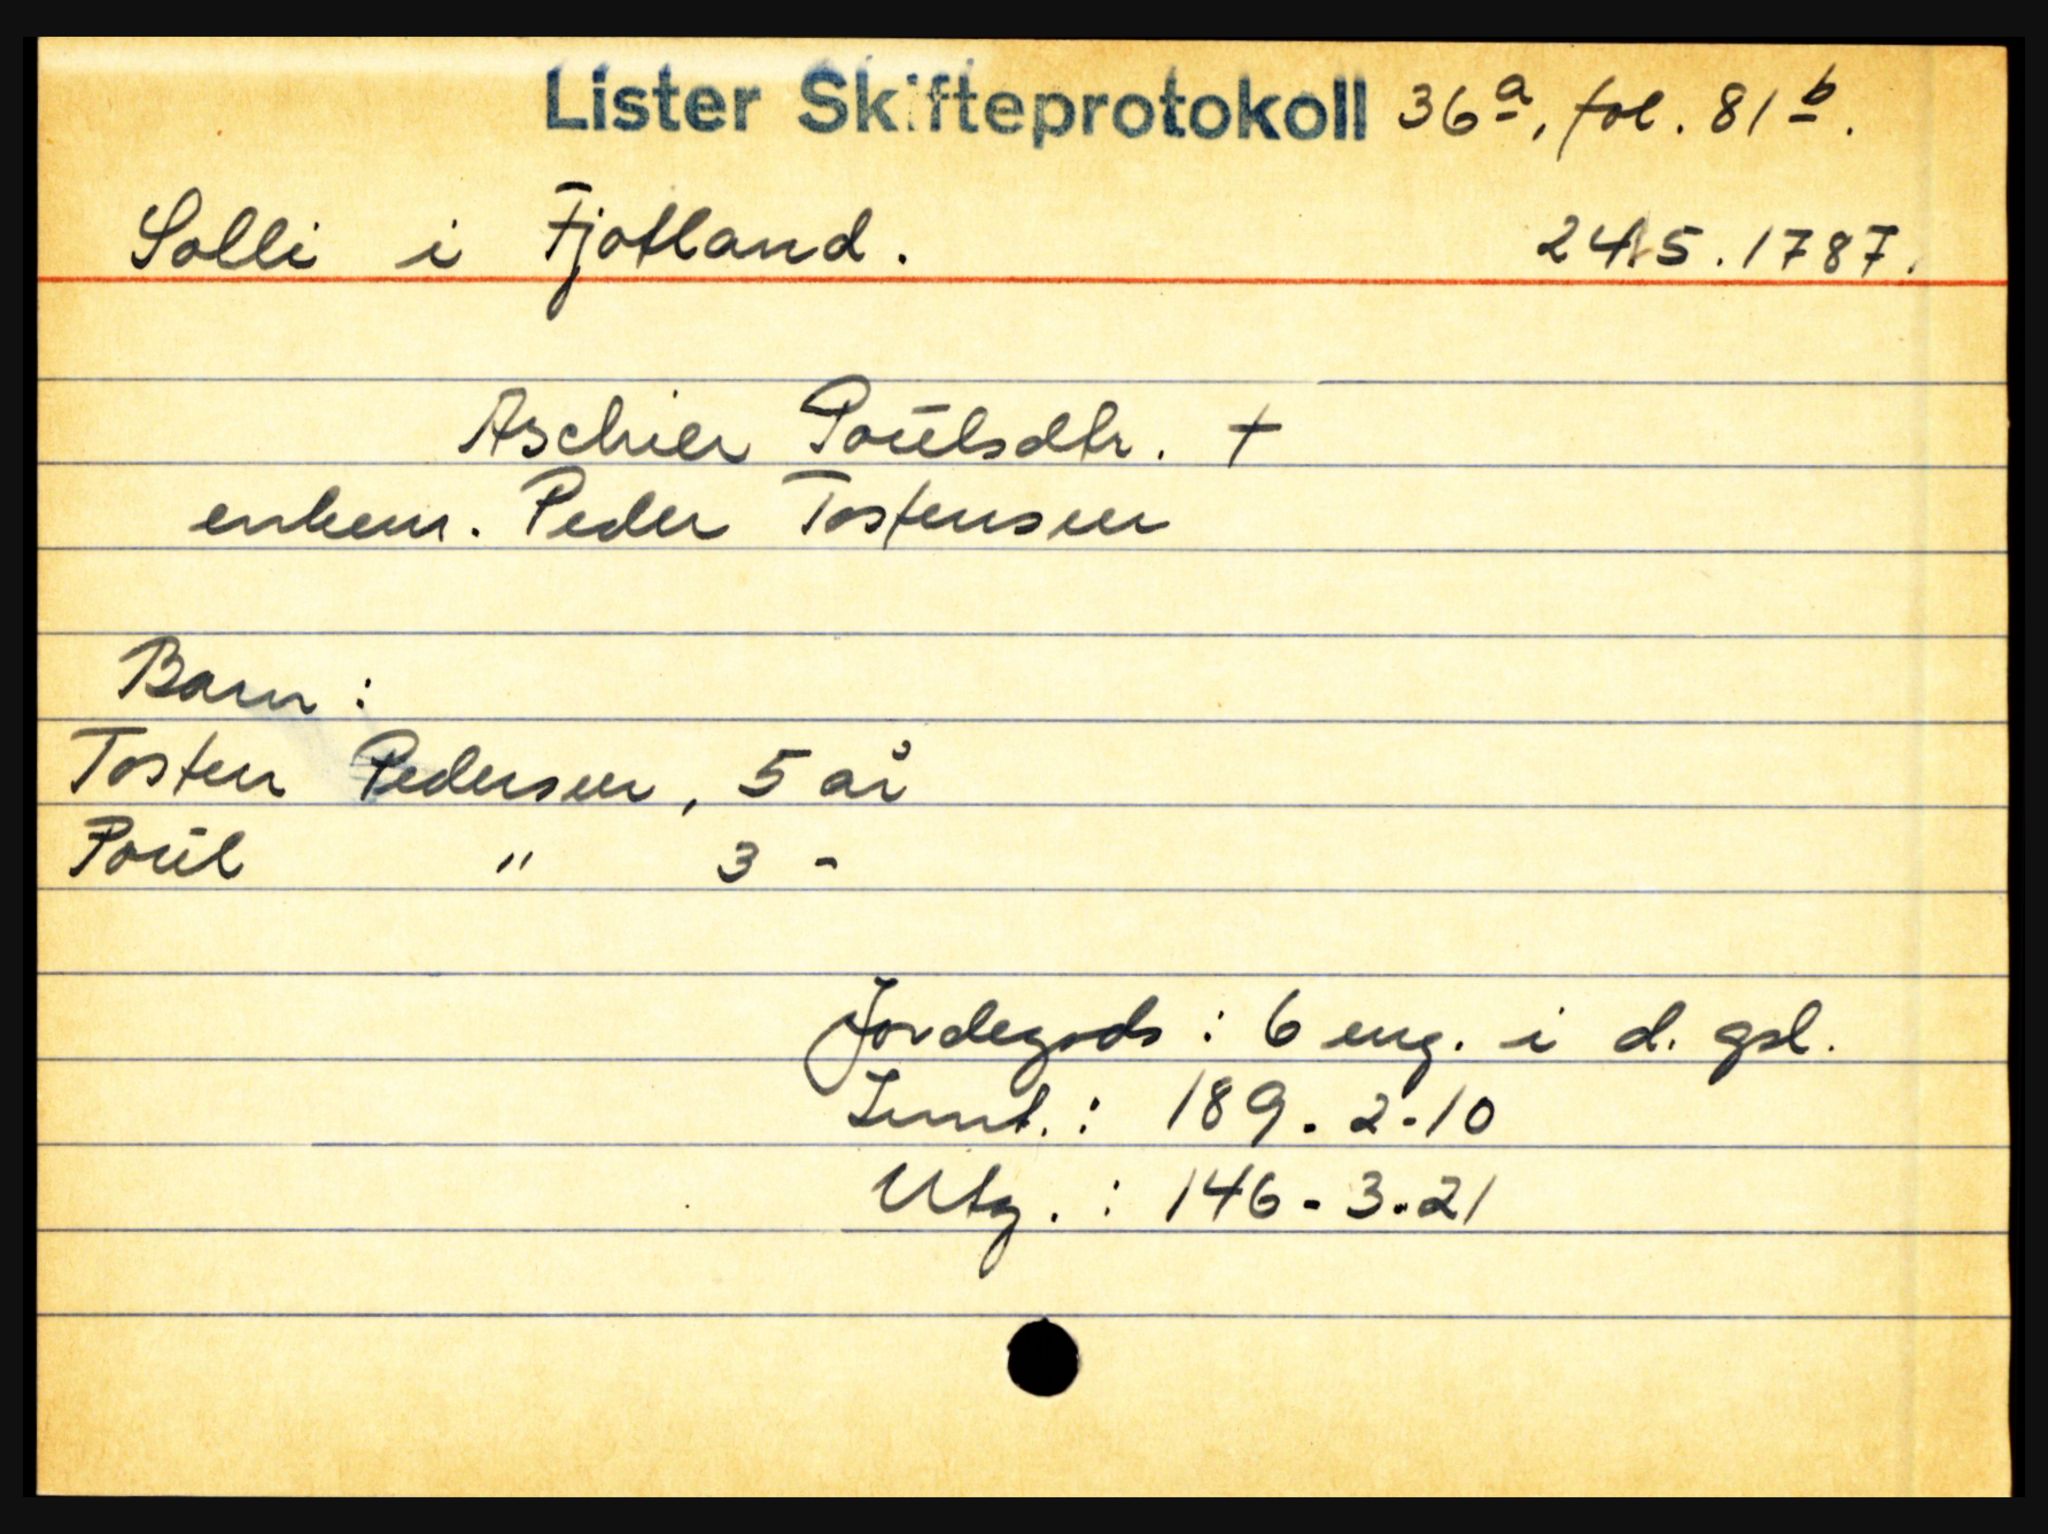 Lister Skifteprotokoll 36a, fol. 81b.
Solli i Fjotland. 24.5.1787.
Aschier Poülsdtr. +
enkem. Peder Tostensen
Barn:
Tosten Pedersen, 5 år
Poül " 3 -
Jordegods: 6 eng. i d. gsl.
Innt.: 189.2-10
Utg.: 146-3-21